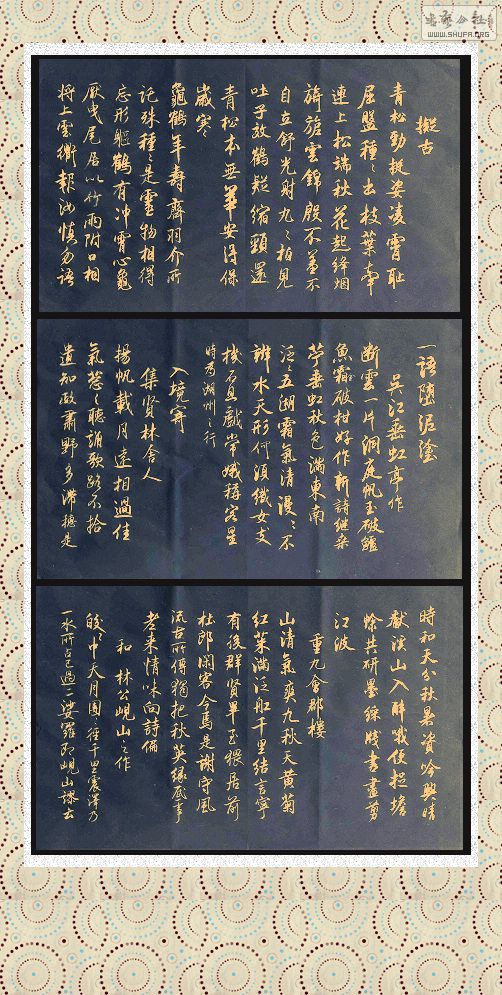 書法公社
WWW.SHUFA.ORG
擬古
青松勁挺姿凌霄恥
屈盤種〻出枝葉牽
連上松端秋花起絳烟
旖旎雲錦殷不羞不
自立舒光射丸〻柏見
吐子效鶴疑縮頸還
青松本無華安得保
歲寒
龜鶴年壽齊羽介所
託殊種〻是靈物相得
忘形軀鶴有冲霄心龜
厭曳尾居以竹兩附口相
將上雲衢報汝慎勿語
一語墮泥塗
吳江垂虹亭作
斷雲一片洞庭帆玉破鱸
魚霜破柑好作新詩繼桑
苧垂虹秋色滿東南
泛〻五湖霜氣清漫〻不
辨水天形何須織女支
機石且戲常娥稱客星
時為湖州之行
入境寄
集賢林舍人
揚帆載月遠相過佳
氣蔥〻聽誦歌路不拾
遺知政肅野多滯穗是
時和天分秋暑資吟興晴
獻溪山入醉哦便捉蟾
蜍共研墨綵牋書盡剪
江波
重九會郡樓
山清氣爽九秋天黃菊
紅茱滿泛船千里結言寧
有後群賢畢至猥居前
杜郎閑客今焉是謝守風
流古所傳獨把秋英緣底事
老來情味向詩偏
和 林公峴山之作
皎〻中天月團〻徑千里震澤乃
一水所占已過二娑羅即峴山謬云